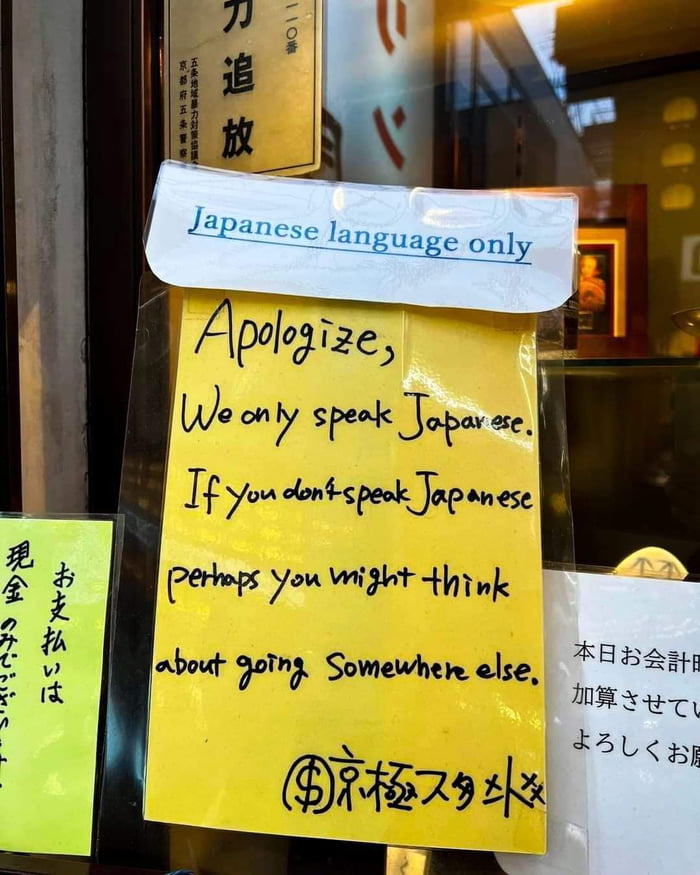 力追放
一一〇番
五条地域暴力対策協議
京都府五条警察
リン
Japanese language only
Apologize,
We only speak Japanese.
If you don't speak Japanese
perhaps you might think
about going somewhere else.
京極スタンド
お支払いは
現金のみでございます
本日お会計時
加算させてい
よろしくお願